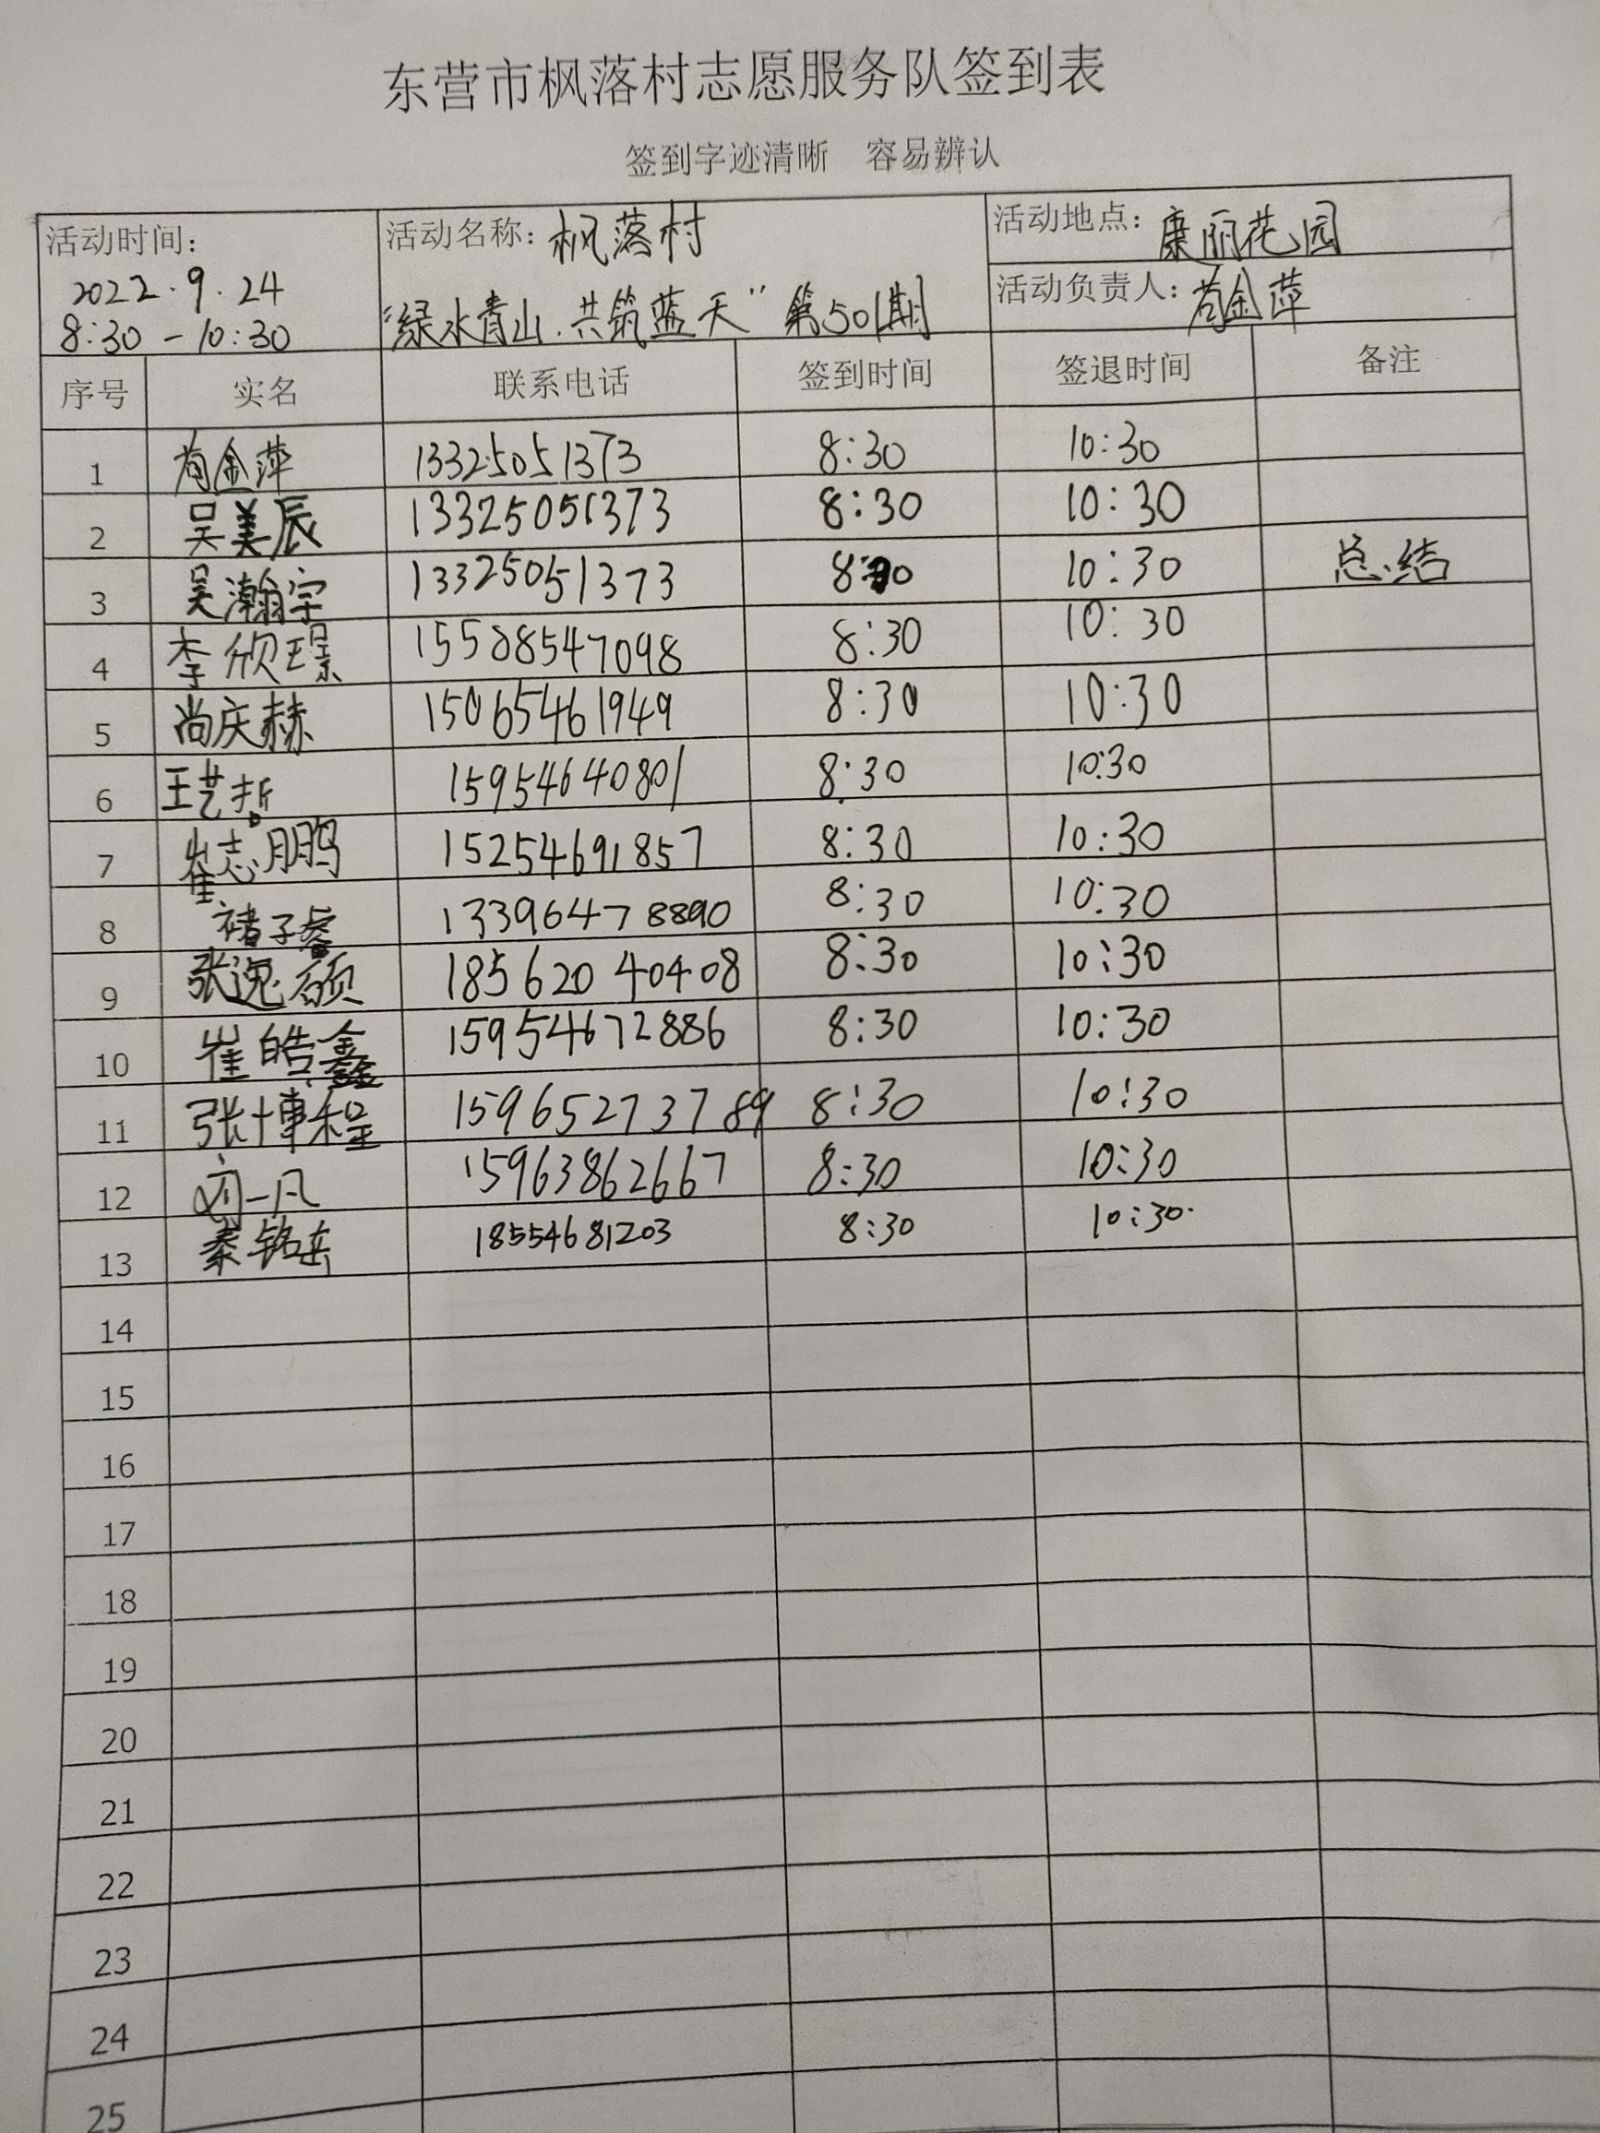 东营市枫落村志愿服务队签到表
签到字迹清晰 容易辨认
活动时间: 活动名称: 枫落村 活动地点: 康丽花园
2022.9.24 活动负责人: 苟金萍
8:30-10:30 "绿水青山.共筑蓝天"第501期
序号 实名 联系电话 签到时间 签退时间 备注
1 苟金萍 13325051373 8:30 10:30
2 吴美辰 13325051373 8:30 10:30
3 吴瀚宇 13325051373 8:30 10:30 总结
4 李欣璟 15508547098 8:30 10:30
5 尚庆赫 15065461949 8:30 10:30
6 王艺哲 15954640801 8:30 10:30
7 崔志鹏 15254691857 8:30 10:30
8 褚子睿 13396478890 8:30 10:30
9 张逸硕 18562040408 8:30 10:30
10 崔皓鑫 15954672886 8:30 10:30
11 张博程 15965273789 8:30 10:30
12 刘一凡 15963862667 8:30 10:30
13 秦铭岳 18554681203 8:30 10:30
14
15
16
17
18
19
20
21
22
23
24
25